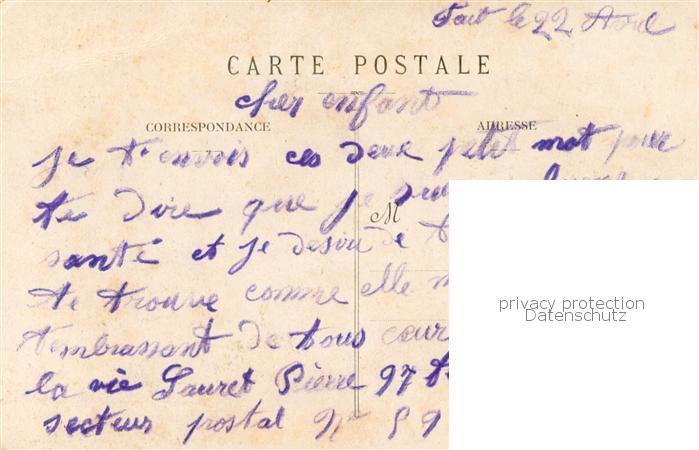 Fait le 22 Avril
CARTE POSTALE
cher enfant
CORRESPONDANCE
ADRESSE
je t'envois ces deux petit mot pour
te dire que je
M
santé et je desire de
te trouve comme elle
t'embrassant de tous cœur
la vie Lauret Pierre 97
secteur postal N° 59
privacy protection
Datenschutz